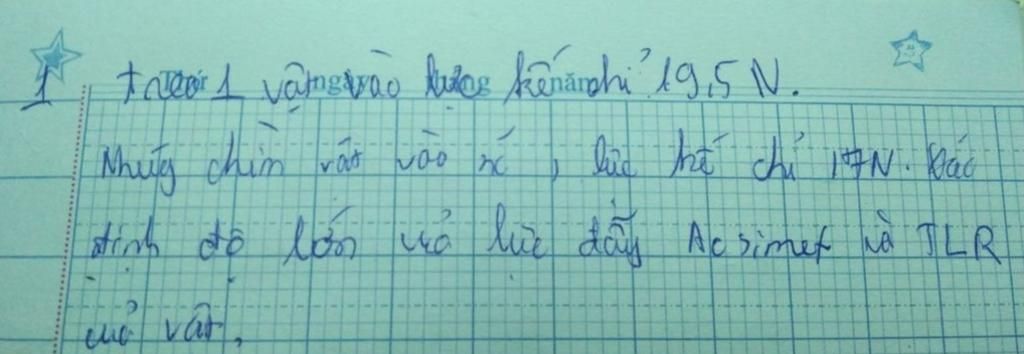 1 treo 1 vật vào lực kế chỉ 19,5 N.
Nhúng chìm vật vào nc, lực kế chỉ 17N. Xác
định độ lớn của lực đẩy Acsimet và TLR
của vật.